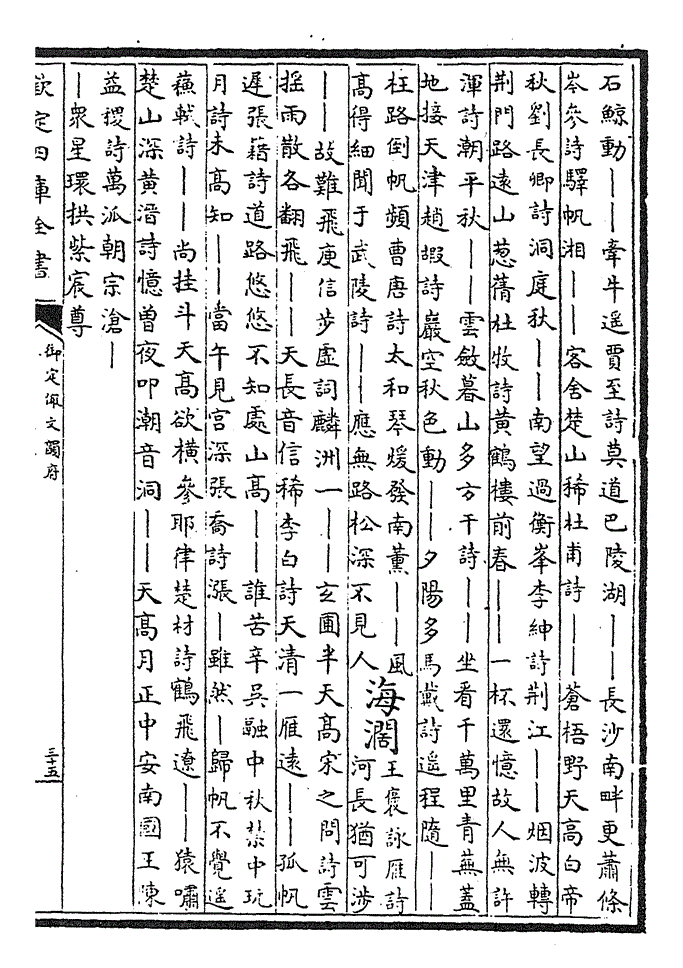 石鯨動｜｜牽牛遥賈至詩莫道巴陵湖｜｜長沙南畔更蕭條
岑參詩驛帆湘｜｜客舍楚山稀杜甫詩｜｜蒼梧野天髙白帝
秋劉長卿詩洞庭秋｜｜南望過衡峯李紳詩荆江｜｜烟波轉
荆門路逺山葱蒨杜牧詩黄鶴樓前春｜｜一杯還憶故人無許
渾詩潮平秋｜｜雲斂暮山多方干詩｜｜坐看千萬里青蕪蓋
地接天津趙嘏詩巖空秋色動｜｜夕陽多馬戴詩遥程隨｜｜
枉路倒帆頻曹唐詩太和琴煖發南薰｜｜風
髙得細聞于武陵詩｜｜應無路松深不見人 海濶 王褒詠雁詩河長猶可渉
｜｜故難飛庾信步虚詞麟洲一｜｜玄圃半天髙宋之問詩雲
揺雨散各翻飛｜｜天長音信稀李白詩天清一雁逺｜｜孤帆
遲張藉詩道路悠悠不知處山髙｜｜誰苦辛吴融中秋禁中玩
月詩未髙知｜｜當午見宫深張喬詩漲｜雖然｜歸帆不覺遥
蘓軾詩｜｜尚挂斗天髙欲横參耶律楚材詩鶴飛遼｜｜猿嘯
楚山深黄溍詩憶曽夜叩潮音洞｜｜天髙月正中安南國王陳
益稷詩萬派朝宗滄｜
｜衆星環拱紫宸尊
欽定四庫全書
御定佩文韻府
三十五